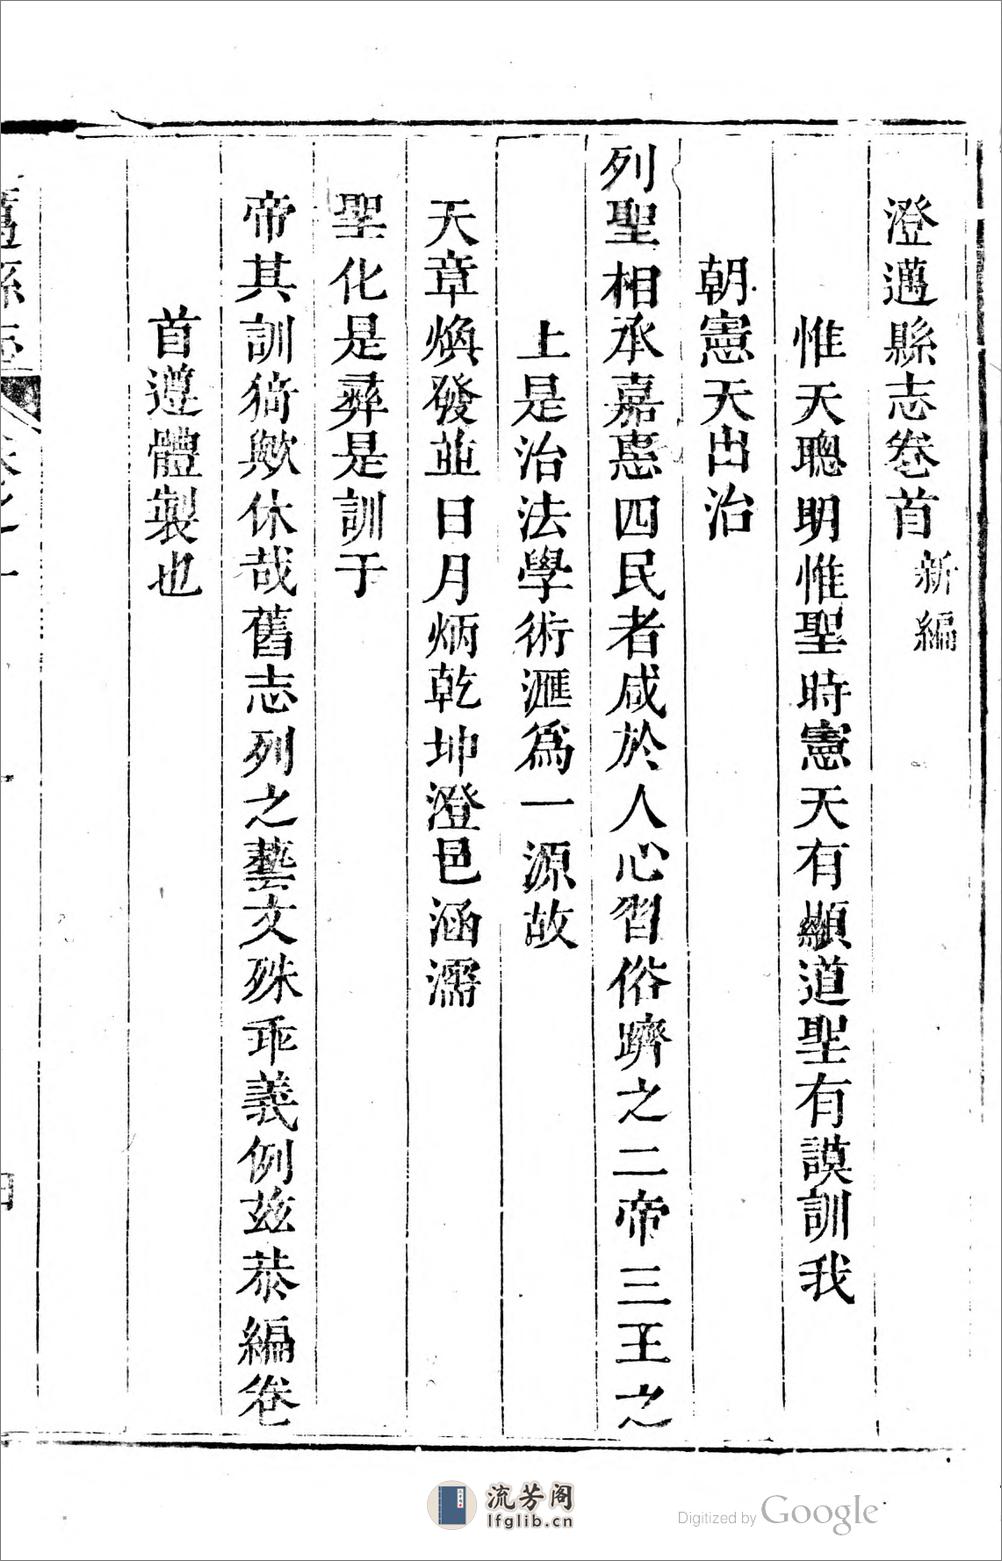 澄邁縣志卷首 新編
惟天聰明惟聖時憲天有顯道聖有謨訓我
朝憲天出治
列聖相承嘉惠四民者咸於人心習俗躋之二帝三王之
上是治法學術滙爲一源故
天章煥發並日月炳乾坤澄邑涵濡
聖化是彞是訓于
帝其訓猗歟休哉舊志列之藝文殊乖義例兹恭編卷
首遵體製也
邁縣志 卷之
流芳阁
lfglib.cn
Digitized by Google